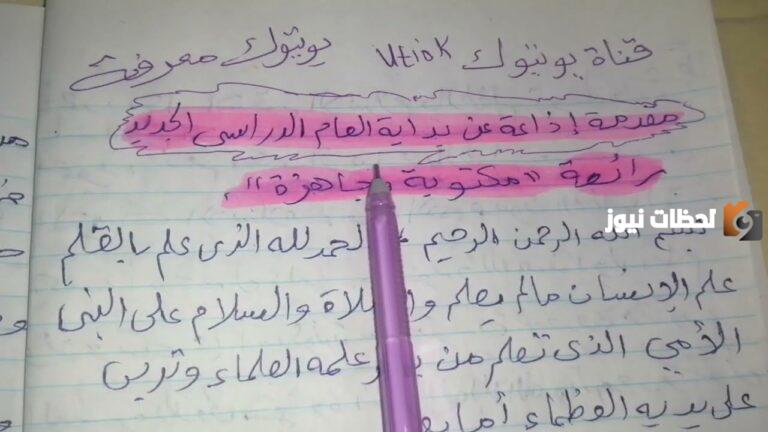 قناة يوتيوك Utiok يوتيوك معرفة
مقدمة إذاعة عن بداية العام الدراسى الجديد
رائعة "مكتوبة جاهزة"
لحظات نيوز
الله الرحمن الرحيم الحمد لله الذى علم بالقلم
علم الإنسان مالم يعلم والسلام على النبى
الأمي الذى تعلم من علمه العلماء وتربى
على يديه العظماء أما